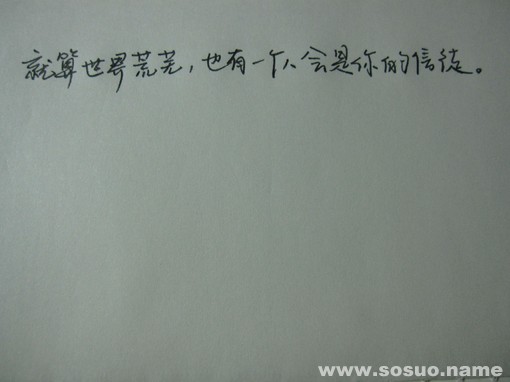 就算世界荒芜，也有一个人会是你的信徒。
www.sosuo.name